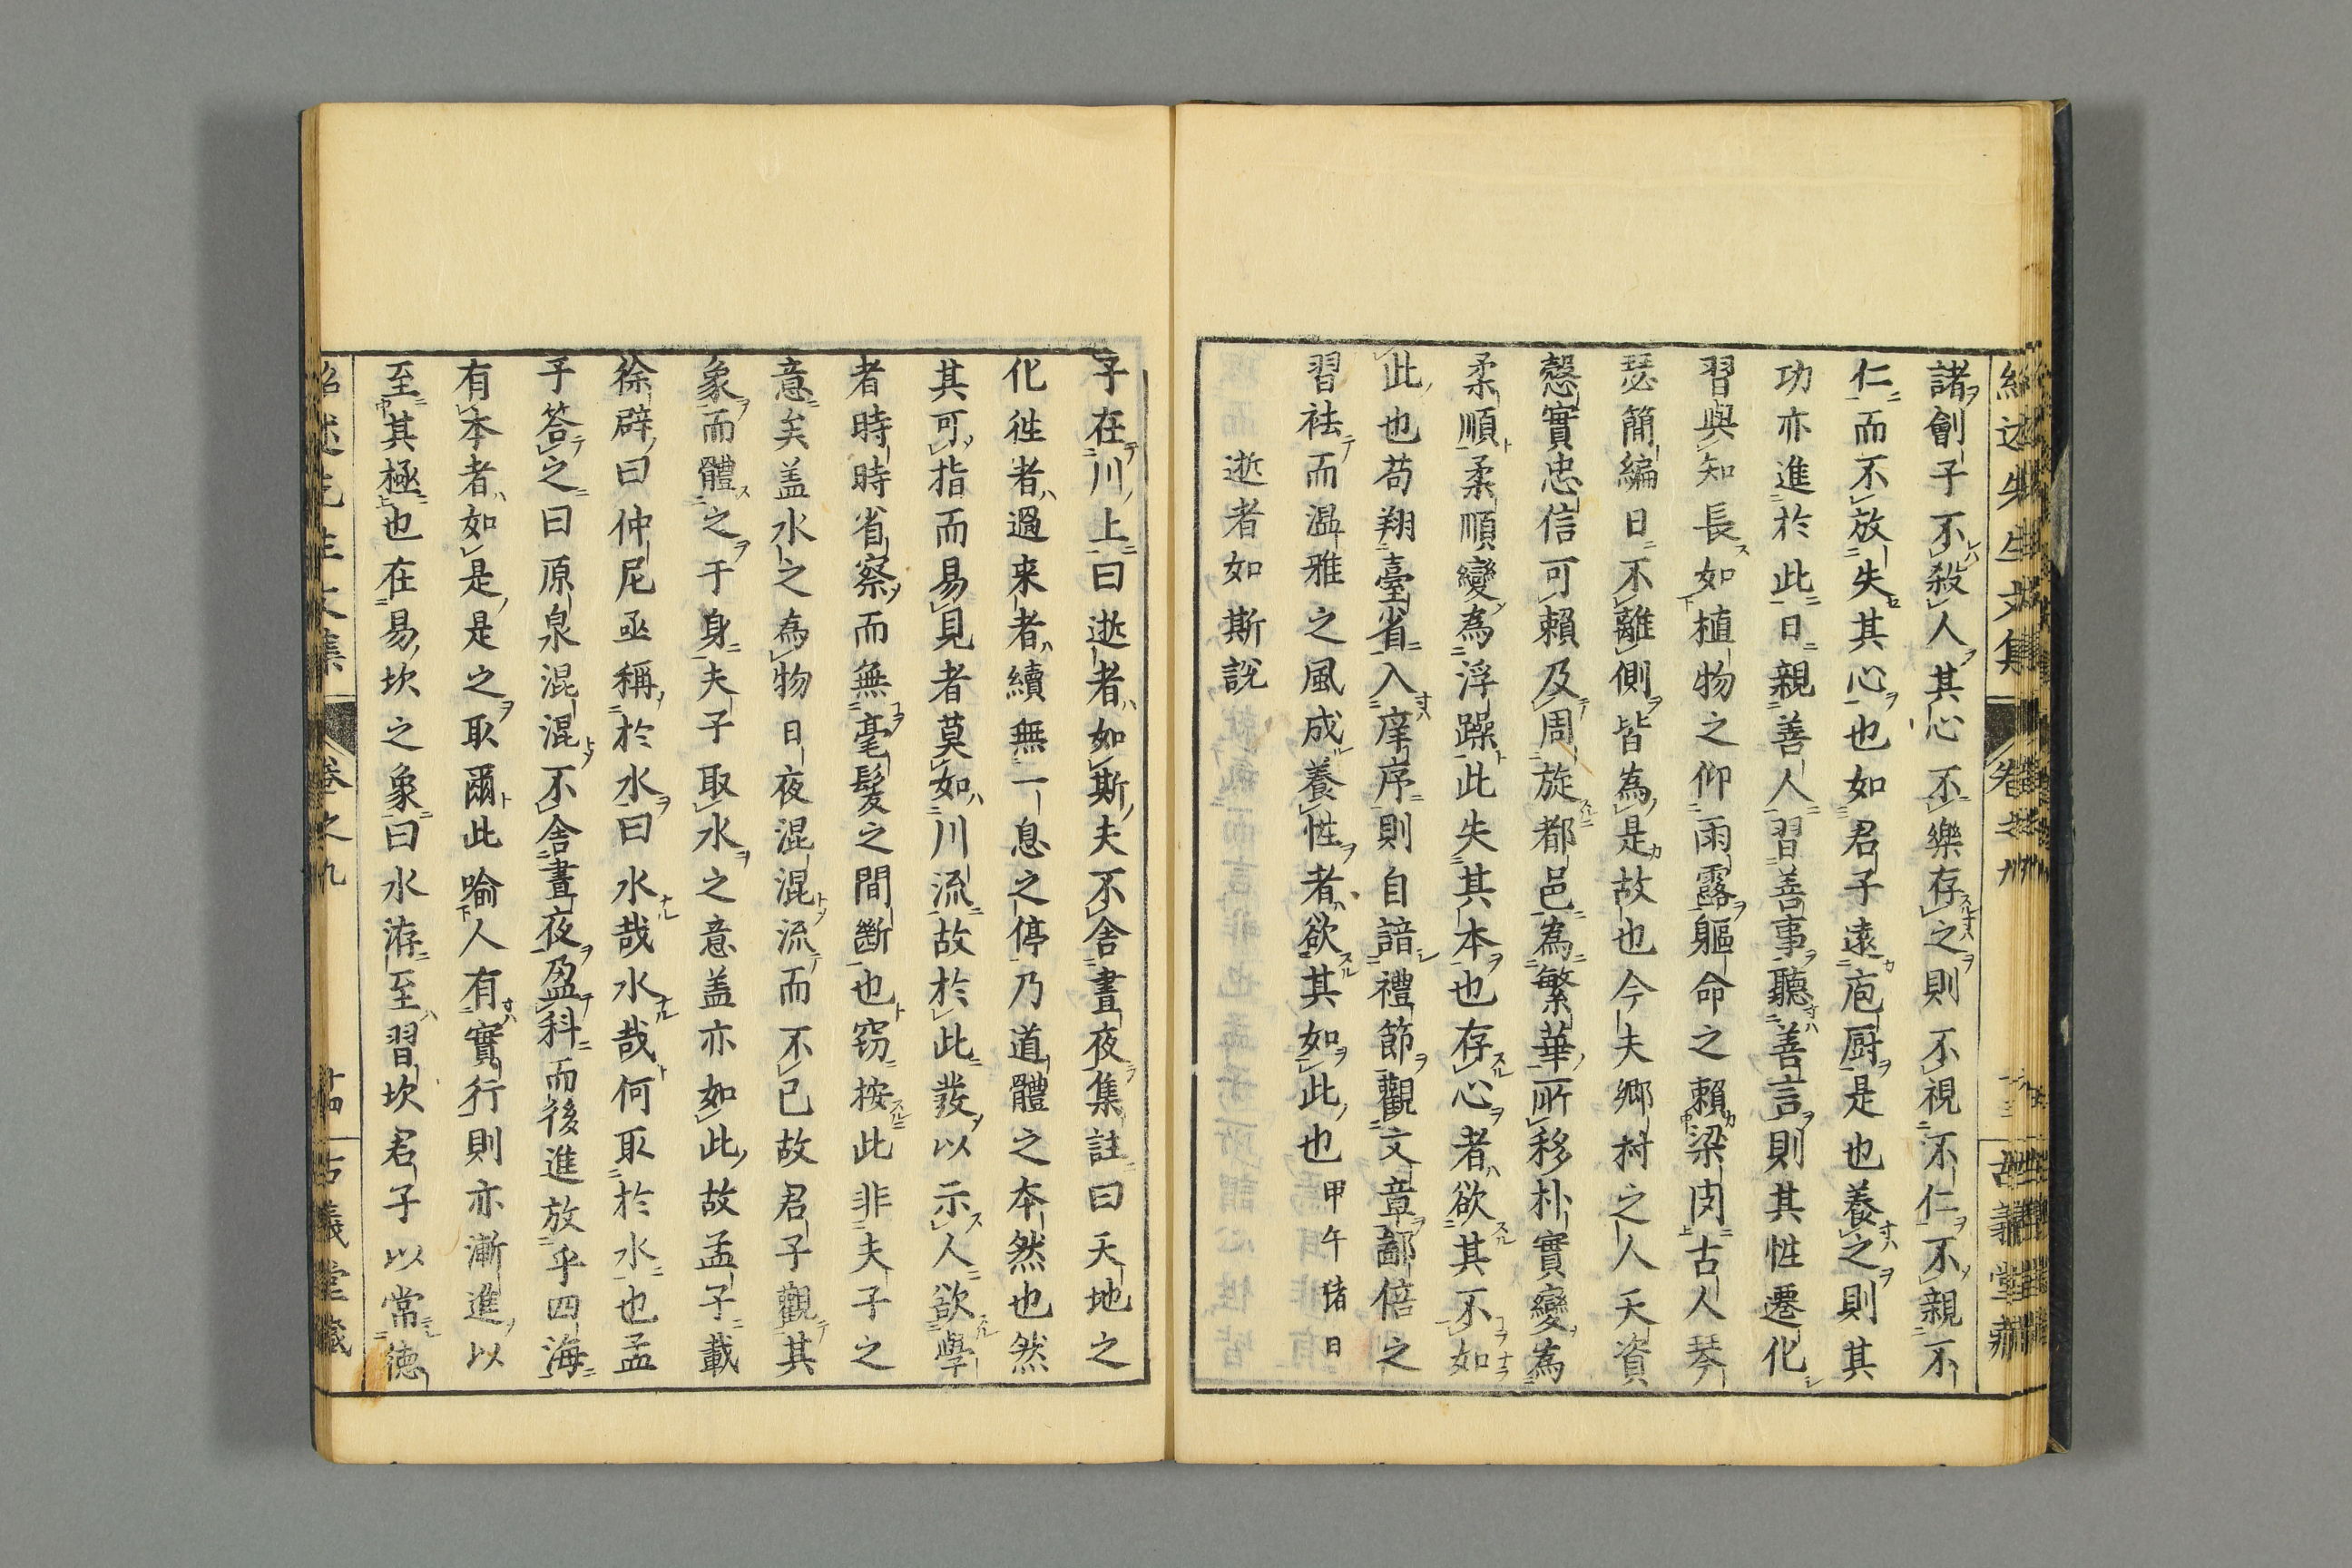 紹述先生文集 卷之九 十三 古義堂藏
諸劊子不殺人其心不樂存之則不視不仁不親不
仁而不放失其心也如君子遠庖厨是也養之則其
功亦進於此日親善人習善事聽善言則其性遷化
習與知長如植物之仰雨露軀命之賴梁肉古人琴
瑟簡編日不離側皆為是故也今夫郷村之人天資
慤實忠信可頼及周旋都邑為繁華所移朴實變為
柔順柔順變為浮躁此失其本也存心者欲其不如
此也苟翔臺省入庠序則自諳禮節觀文章鄙倍之
習袪而温雅之風成養性者欲其如此也甲午猪日
逝者如斯説
子在川上曰逝者如斯夫不舎晝夜集註曰天地之
化徃者過来者續無一息之停乃道體之本然也然
其可指而易見者莫如川流故於此發以示人欲學
者時時省察而無毫髮之間斷也窃按此非夫子之
意矣盖水之為物日夜混混流而不已故君子觀其
象而體之于身夫子取水之意盖亦如此故孟子載
徐辟曰仲尼亟稱於水曰水哉水哉何取於水也孟
子答之曰原泉混混不舎晝夜盈科而後進放乎四海
有本者如是是之取爾此喻人有實行則亦漸進以
至其極也在易坎之象曰水洊至習坎君子以常德
紹述先生文集 卷之九 十四 古義堂藏